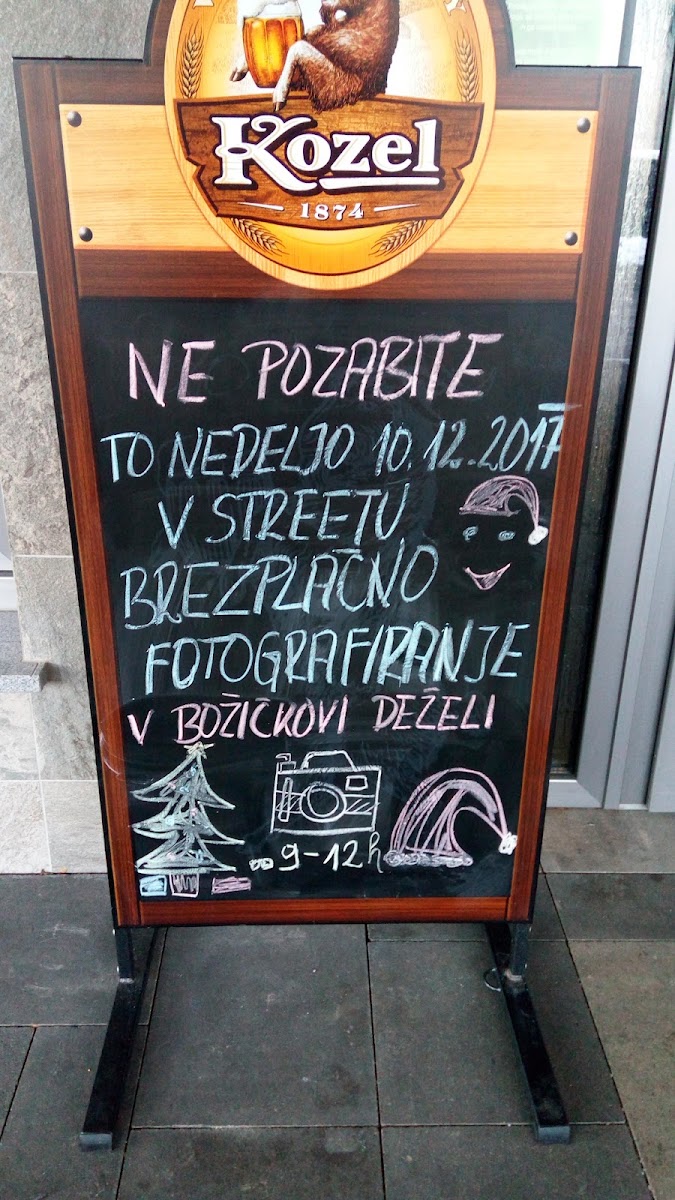 Kozel
1874
NE POZABITE
TO NEDELJO 10.12.2017
V STREETU
BREZPLAČNO
FOTOGRAFIRANJE
V BOŽIČKOVI DEŽELI
OD 9-12h